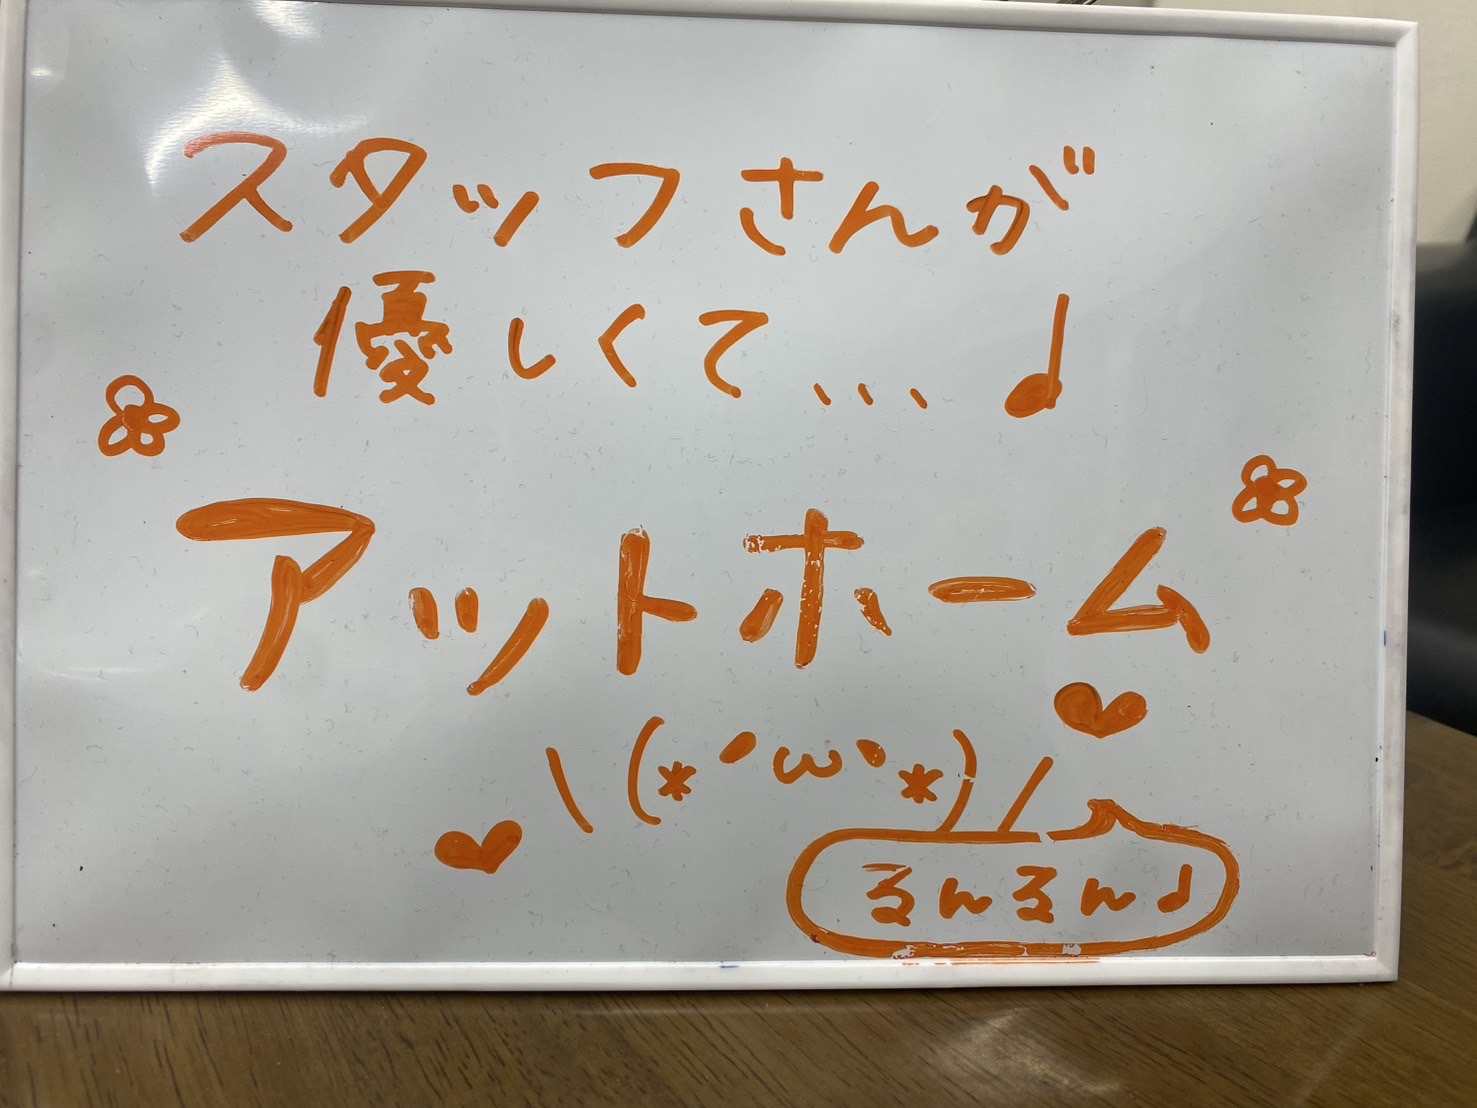 スタッフさんが
優しくて...♩
アットホーム
\(*´ω`*)/
るんるん♩